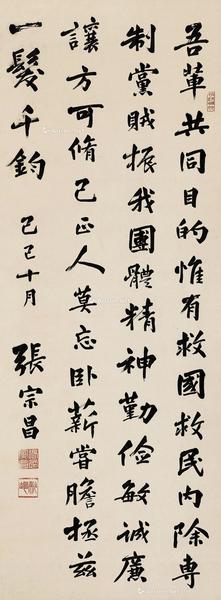 吾輩共同目的惟有救國救民內除專
制黨賊振我團體精神勤儉敏誠廉
讓方可脩己正人莫忘臥薪嘗膽拯茲
一髮千鈞
己巳十月
張宗昌